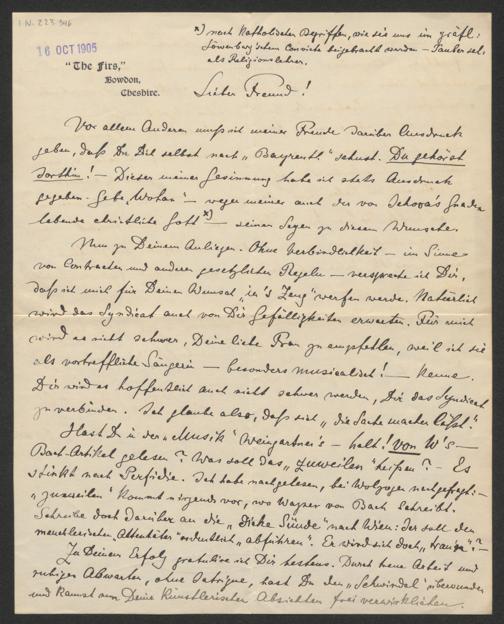 I.N. 223.946
16 OCT 1905
"The Firs,"
Bowdon,
Cheshire.
*) nach Katholischen Begriffen, wie sie uns im gräfl:
Löwenberg'schen Convicte beigebracht worden – Tauber sel:
als Religionslehrer.
Lieber Freund!
Vor allem Anderen muß ich meiner Freude darüber Ausdruck
geben, daß Du Dich selbst nach "Bayreuth" sehnst. Du gehörst
dorthin! – Dieser meiner Gesinnung habe ich stets Ausdruck
gegeben. Gebe "Wotan" – wegen meiner auch der von Jehova's Gnaden
lebende christliche Gott *) – seinen Segen zu diesem Wunsche.
Nun zu Deinem Anliegen. Ohne Verbindlichkeit – im Sinne
von Contracten und anderen gesetzlichen Regeln – verspreche ich Dir,
daß ich mich für Deinen Wunsch "in's Zeug" werfen werde. Natürlich
wird das Syndicat auch von Dir Gefälligkeiten erwarten. Für mich
wird es nicht schwer, Deine liebe Frau zu empfehlen, weil ich sie
als vortreffliche Sängerin – besonders musicalisch! – kenne.
Dir wird es hoffentlich auch nicht schwer werden, Dir das Syndicat
zu verbinden. Ich glaube also, daß sich "die Sache machen läßt".
Hast Du in der "Musik" Weingartner's – halt! von W's –
Bach-Artikel gelesen? Was soll das "zuweilen" heißen? – Es
stinkt nach Perfidie. Ich habe nachgelesen, bei Wolzogen nachgefragt: –
"zuweilen" kommt nirgends vor, wo Wagner von Bach schreibt.
Schreibe doch darüber an die "dicke Sünde" nach Wien: der soll den
meuchlerischen Attentäter ordentlich "abführen". Er wird sich doch "trau'n"? –
Zu Deinem Erfolg gratulire ich Dir bestens. Durch treue Arbeit und
ruhiges Abwarten, ohne Intrigue, hast Du den "Schwindel" überwunden
und kannst nun Deine künstlerischen Absichten frei verwirklichen.